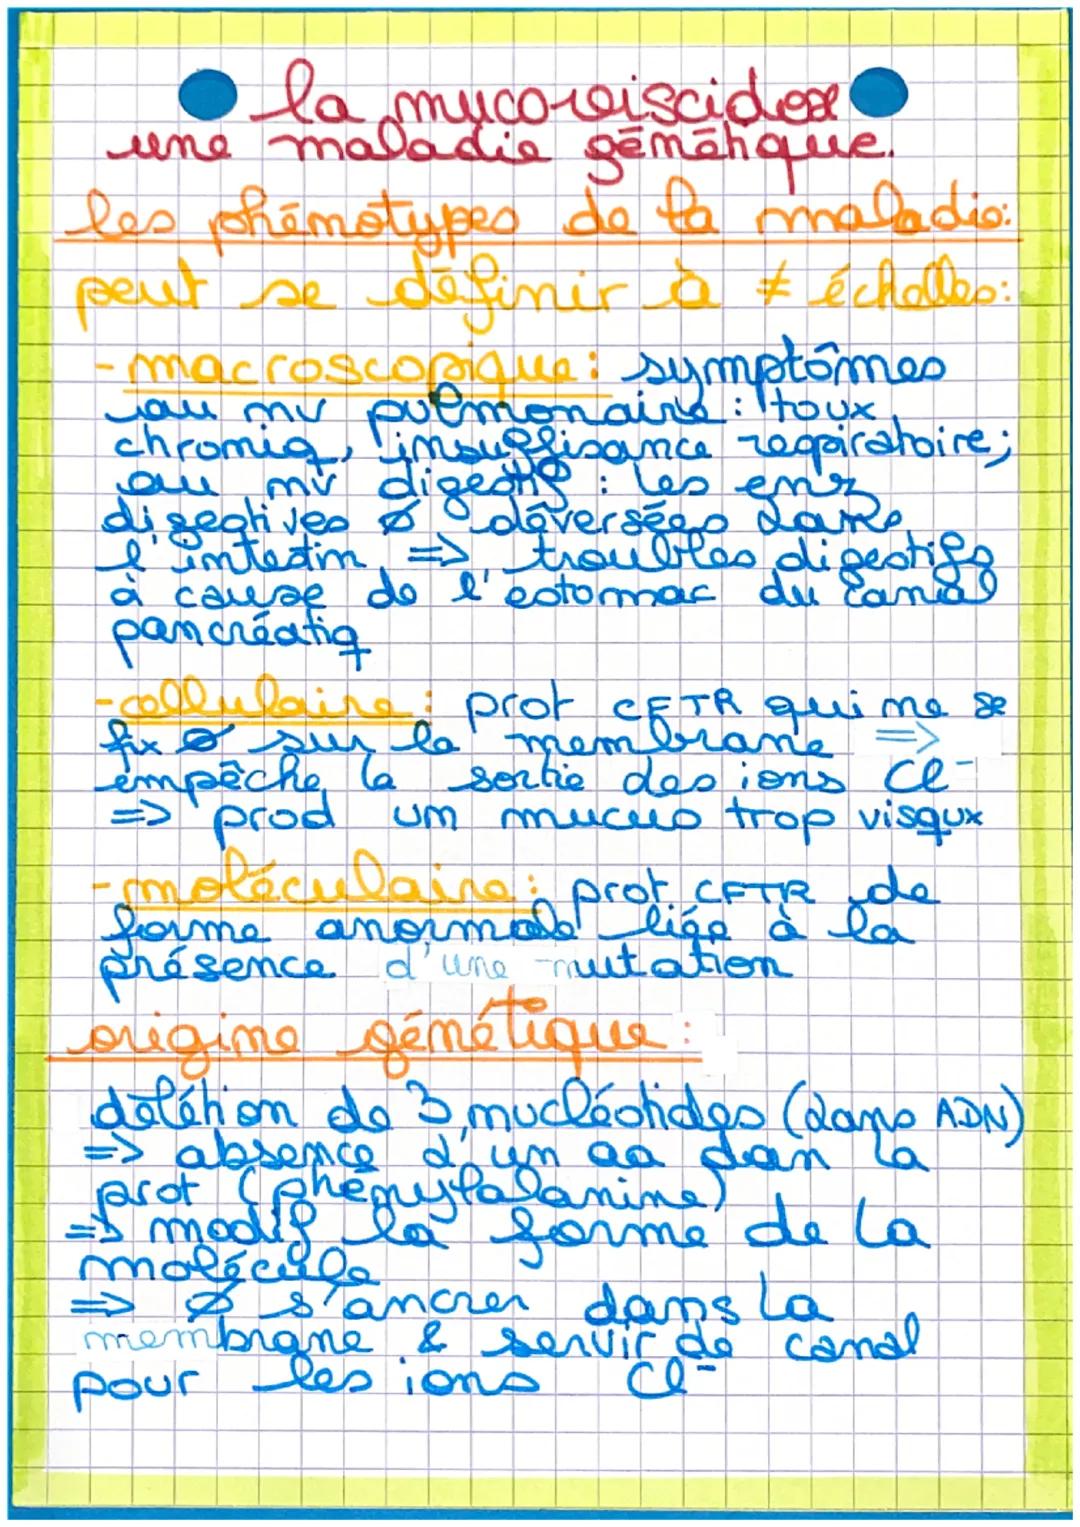 la mucoviscidose
une maladie génétique.
les phénotypes de la maladie:
peut se définir à ≠ échelles:
- macroscopique: symptômes
au nv pulmonaire : toux
chroniq, insuffisance respiratoire;
au nv digestif : les enz
digestives ∅ déversées dans
l'intestin => troubles digestifs
à cause de l'estomac du canal
pancréatiq
- cellulaire: prot CFTR qui ne se
fix ∅ sur la membrane =>
empêche la sortie des ions Cl⁻
=> prod un mucus trop visqux
- moléculaire: prot CFTR de
forme anormale liée à la
présence d'une mutation
origine génétique :
délétion de 3 nucléotides (dans ADN)
=> absence d'un aa dan la
prot (phénylalanine)
=> modif la forme de la
molécule
=> ∅ s'ancrer dans la
membrane & servir de canal
pour les ions Cl⁻